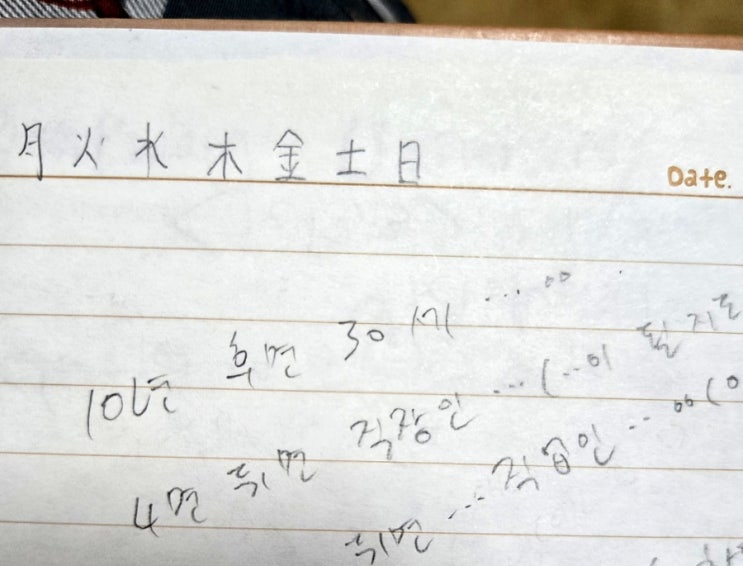 月 火 水 木 金 土 日
Date.
10년 후면 30세 ... ㅇㅇ
4년 휘면 직장인 ... (...이 될지도
휘면 ... 직업인 ... ㅇㅇ (